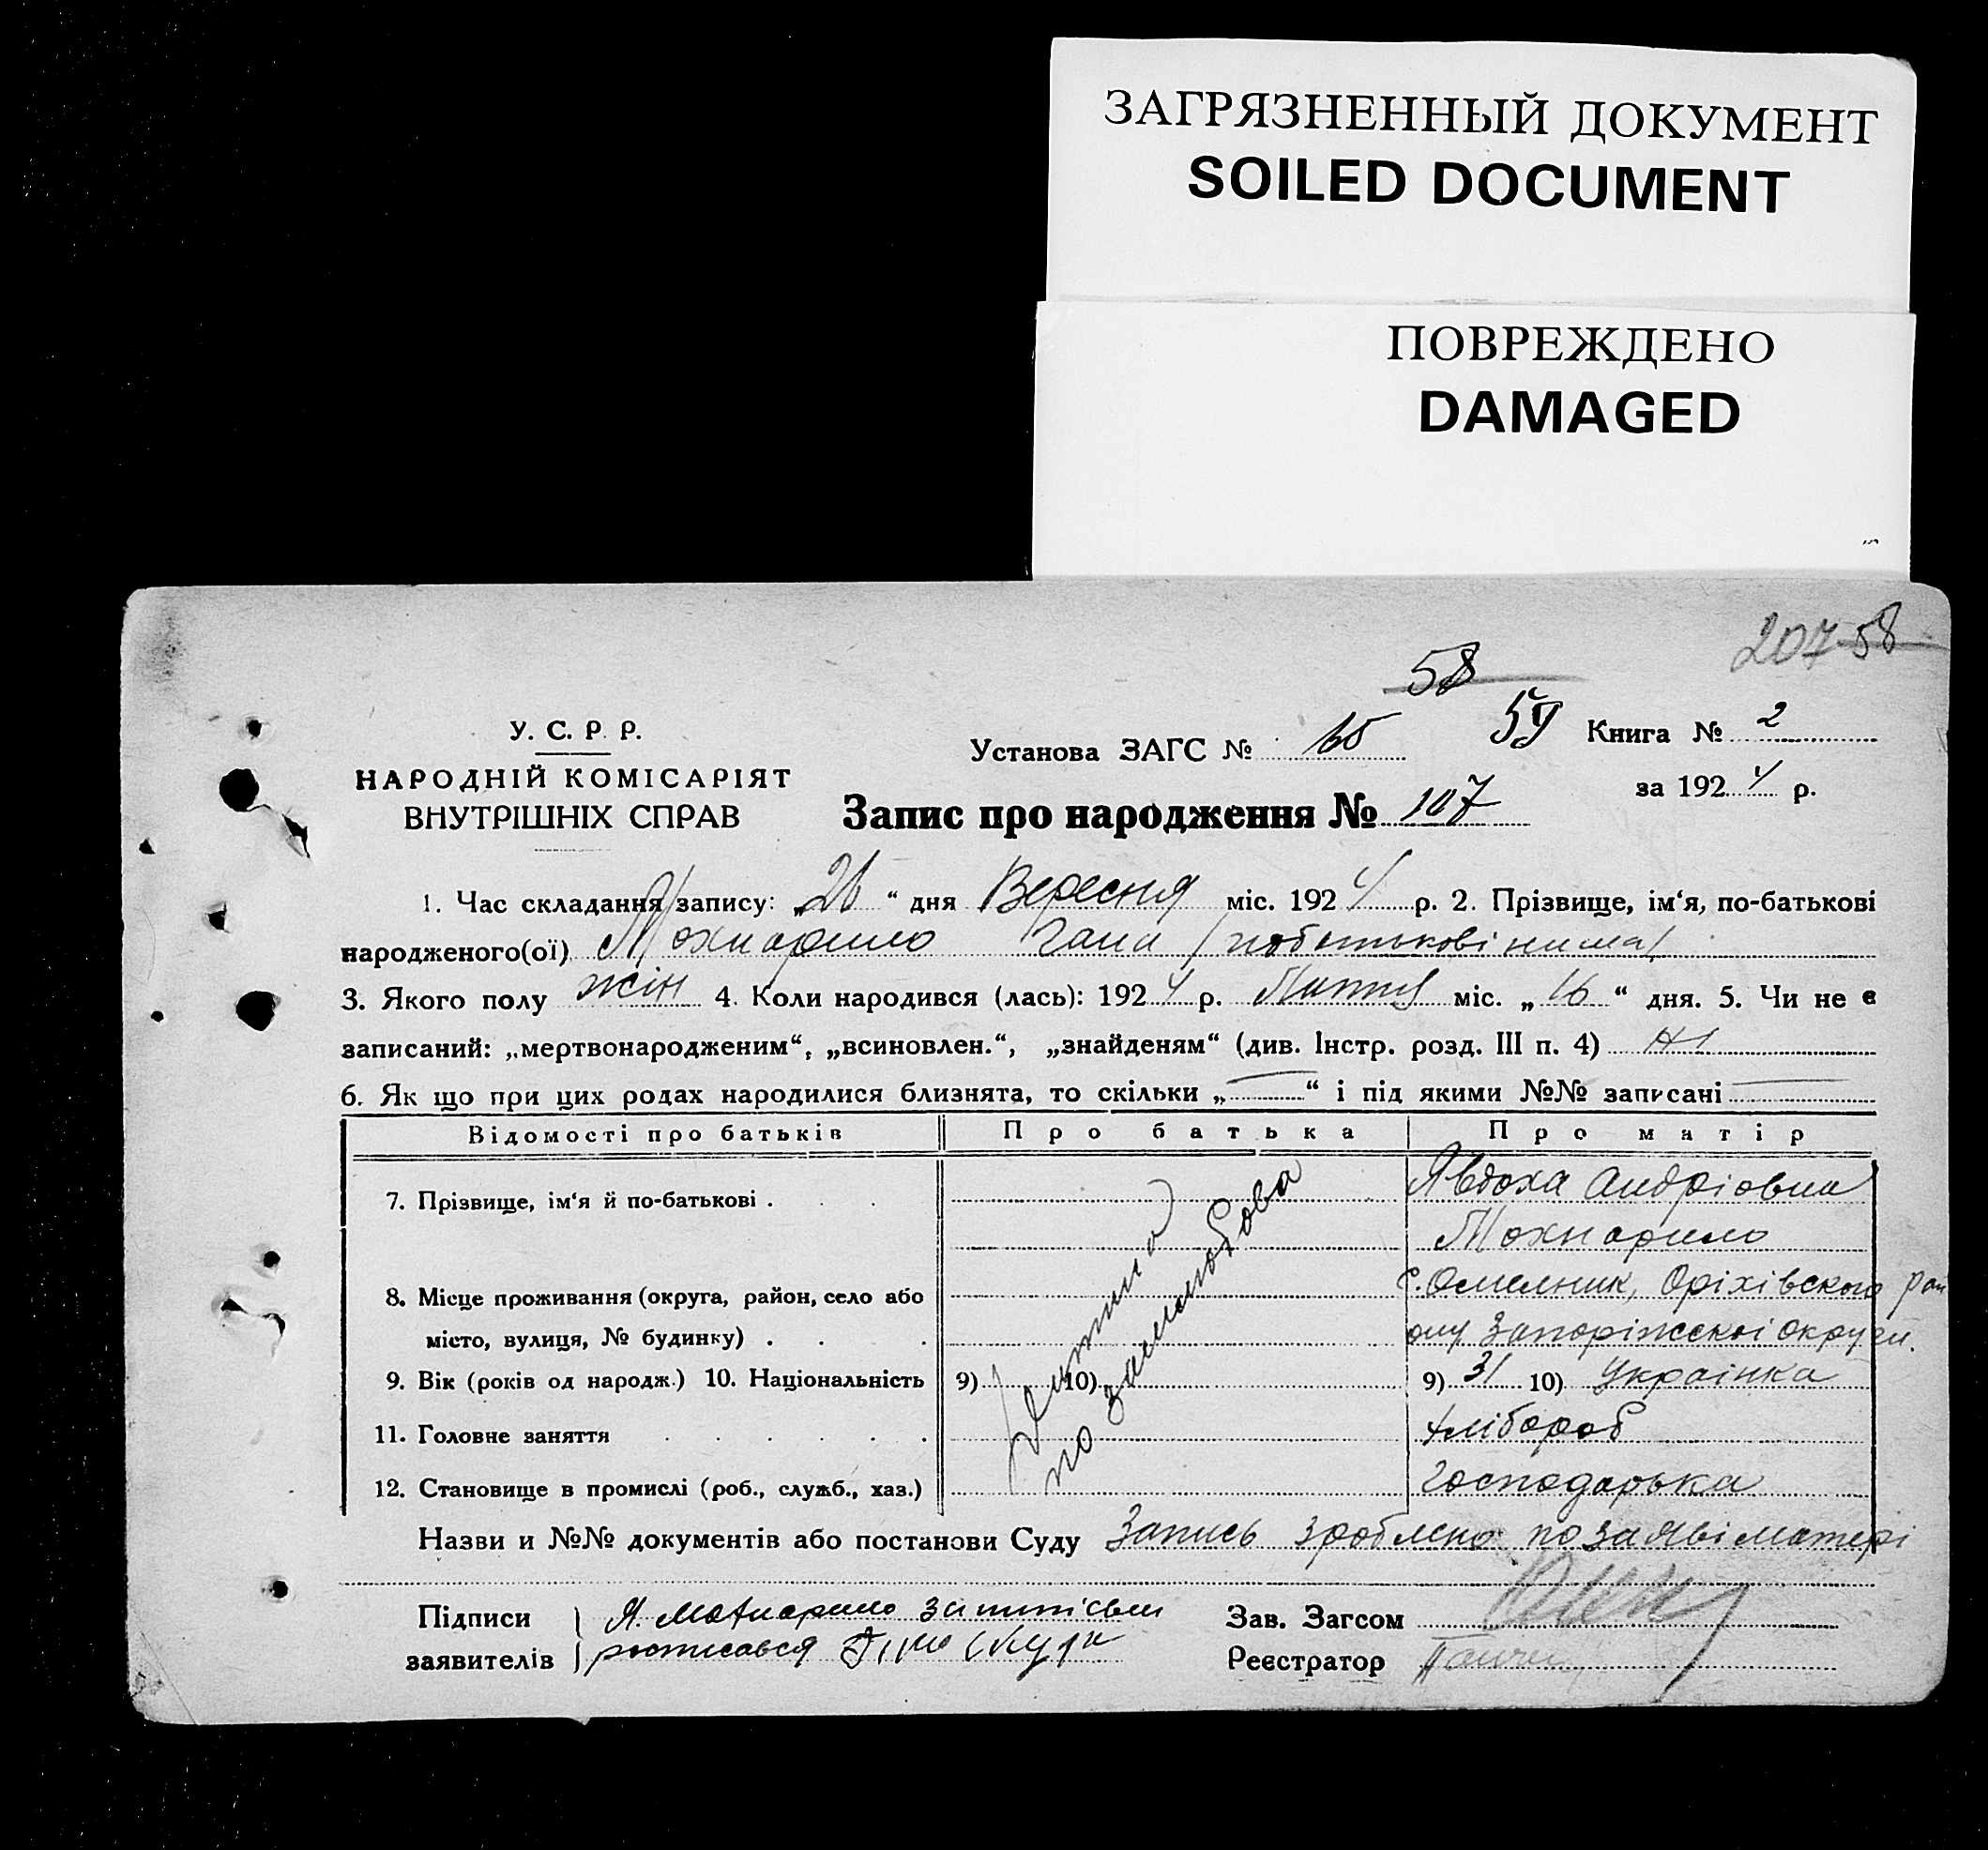 ЗАГРЯЗНЕННЫЙ ДОКУМЕНТ
SOILED DOCUMENT
ПОВРЕЖДЕНО
DAMAGED
207 58
58
У. С. Р. Р.
Установа ЗАГС № 59 Книга № 2
НАРОДНІЙ КОМІСАРІЯТ
за 1924 р.
ВНУТРІШНІХ СПРАВ
Запис про народження № 107
1. Час складання запису: „26“ дня Вересня міс. 1924 р. 2. Прізвище, ім‘я, по-батькові
народженого(ої) Мохнарило Гана /побатькові нима/
3. Якого полу жін 4. Коли народився (лась): 1924 р. Липня міс. „16“ дня. 5. Чи не є
записаний: „мертвонародженим“, „всиновлен.“, „знайденям“ (див. Інстр. розд. III п. 4) ні
6. Як що при цих родах народилися близнята, то скільки „—“ і під якими №№ записані —
Відомості про батьків Про батька Про матір
7. Прізвище, ім‘я й по-батькові . . . Явдоха Андріовна
Мохнарило
8. Місце проживання (округа, район, село або с. Омелник, Оріхівского рай
місто, вулиця, № будинку) . . . ону Запоріжскої округи.
9. Вік (років од народж.) 10. Національність 9) 10) 9) 31 10) Українка
11. Головне заняття . . . . . . хлібороб
12. Становище в промислі (роб., служб., хаз.) господарька
Дитина
по за шлюбова
Назви и №№ документів або постанови Суду Запись зроблено по заяві матері
Підписи Я. Мохнарило Зав. Загсом
заявителів росписався Реєстратор